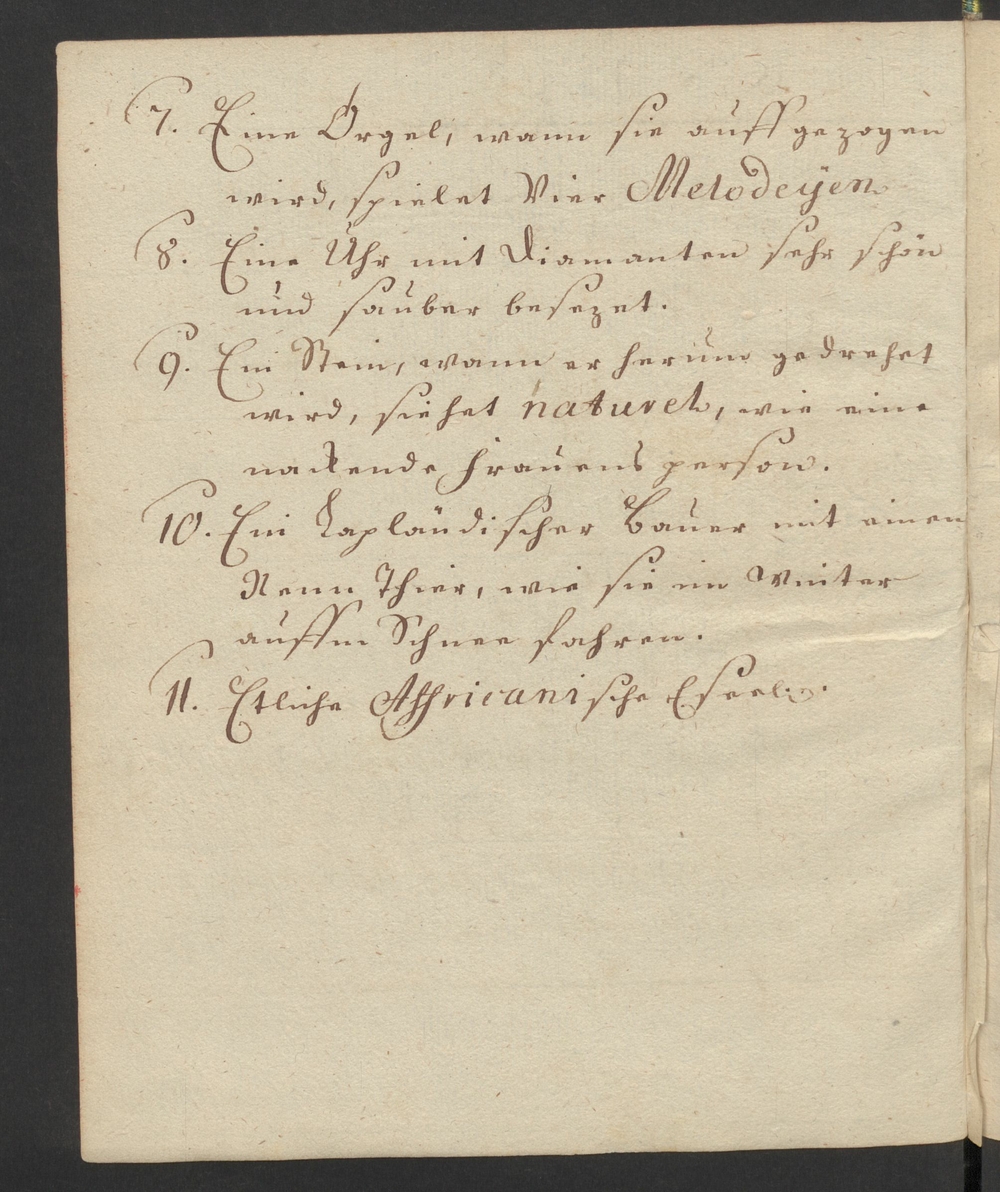 7. Eine Orgel, wann sie auff gezogen
wird, spielet Vier Melodeÿen
8. Eine Uhr mit Diamanten sehr schön
und sauber besezet.
9. Ein Stein, wann er herum gedrehet
wird, siehet naturel, wie eine
nackende Frauens person.
10. Ein Lapländischer Bauer mit einen
Renn Thier, wie sie im Winter
auffm Schnee fahren.
11. Etliche Affricanische Eseel.